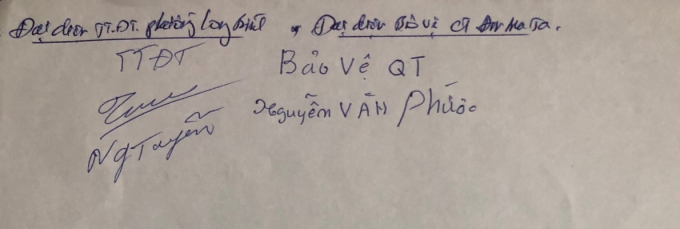 Đại diện TT.ĐT. phường Long Bình, Đại diện Bảo vệ CT Amata.
TTĐT Bảo Vệ QT
Nguyễn VĂN Phước
Ng Tuyên